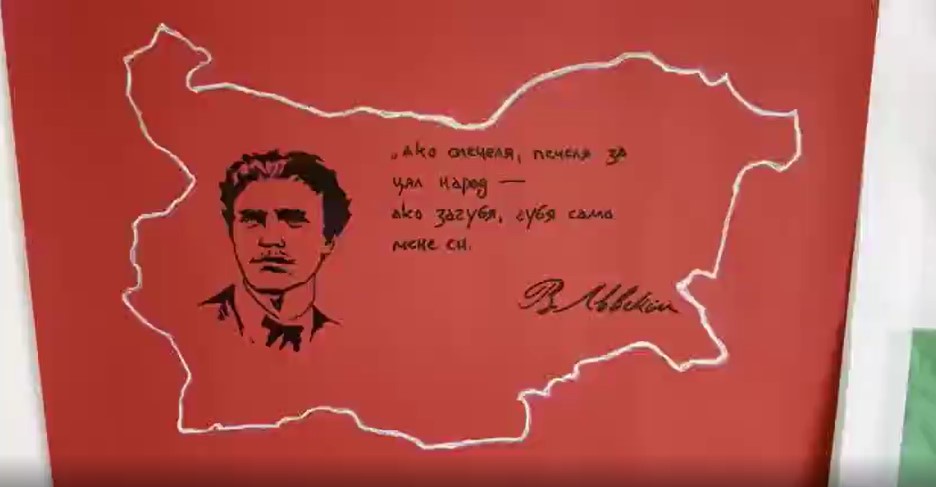 „Ако спечеля, печеля за
цял народ —
ако загубя, губя само
мене си.
В. Лѣвскии